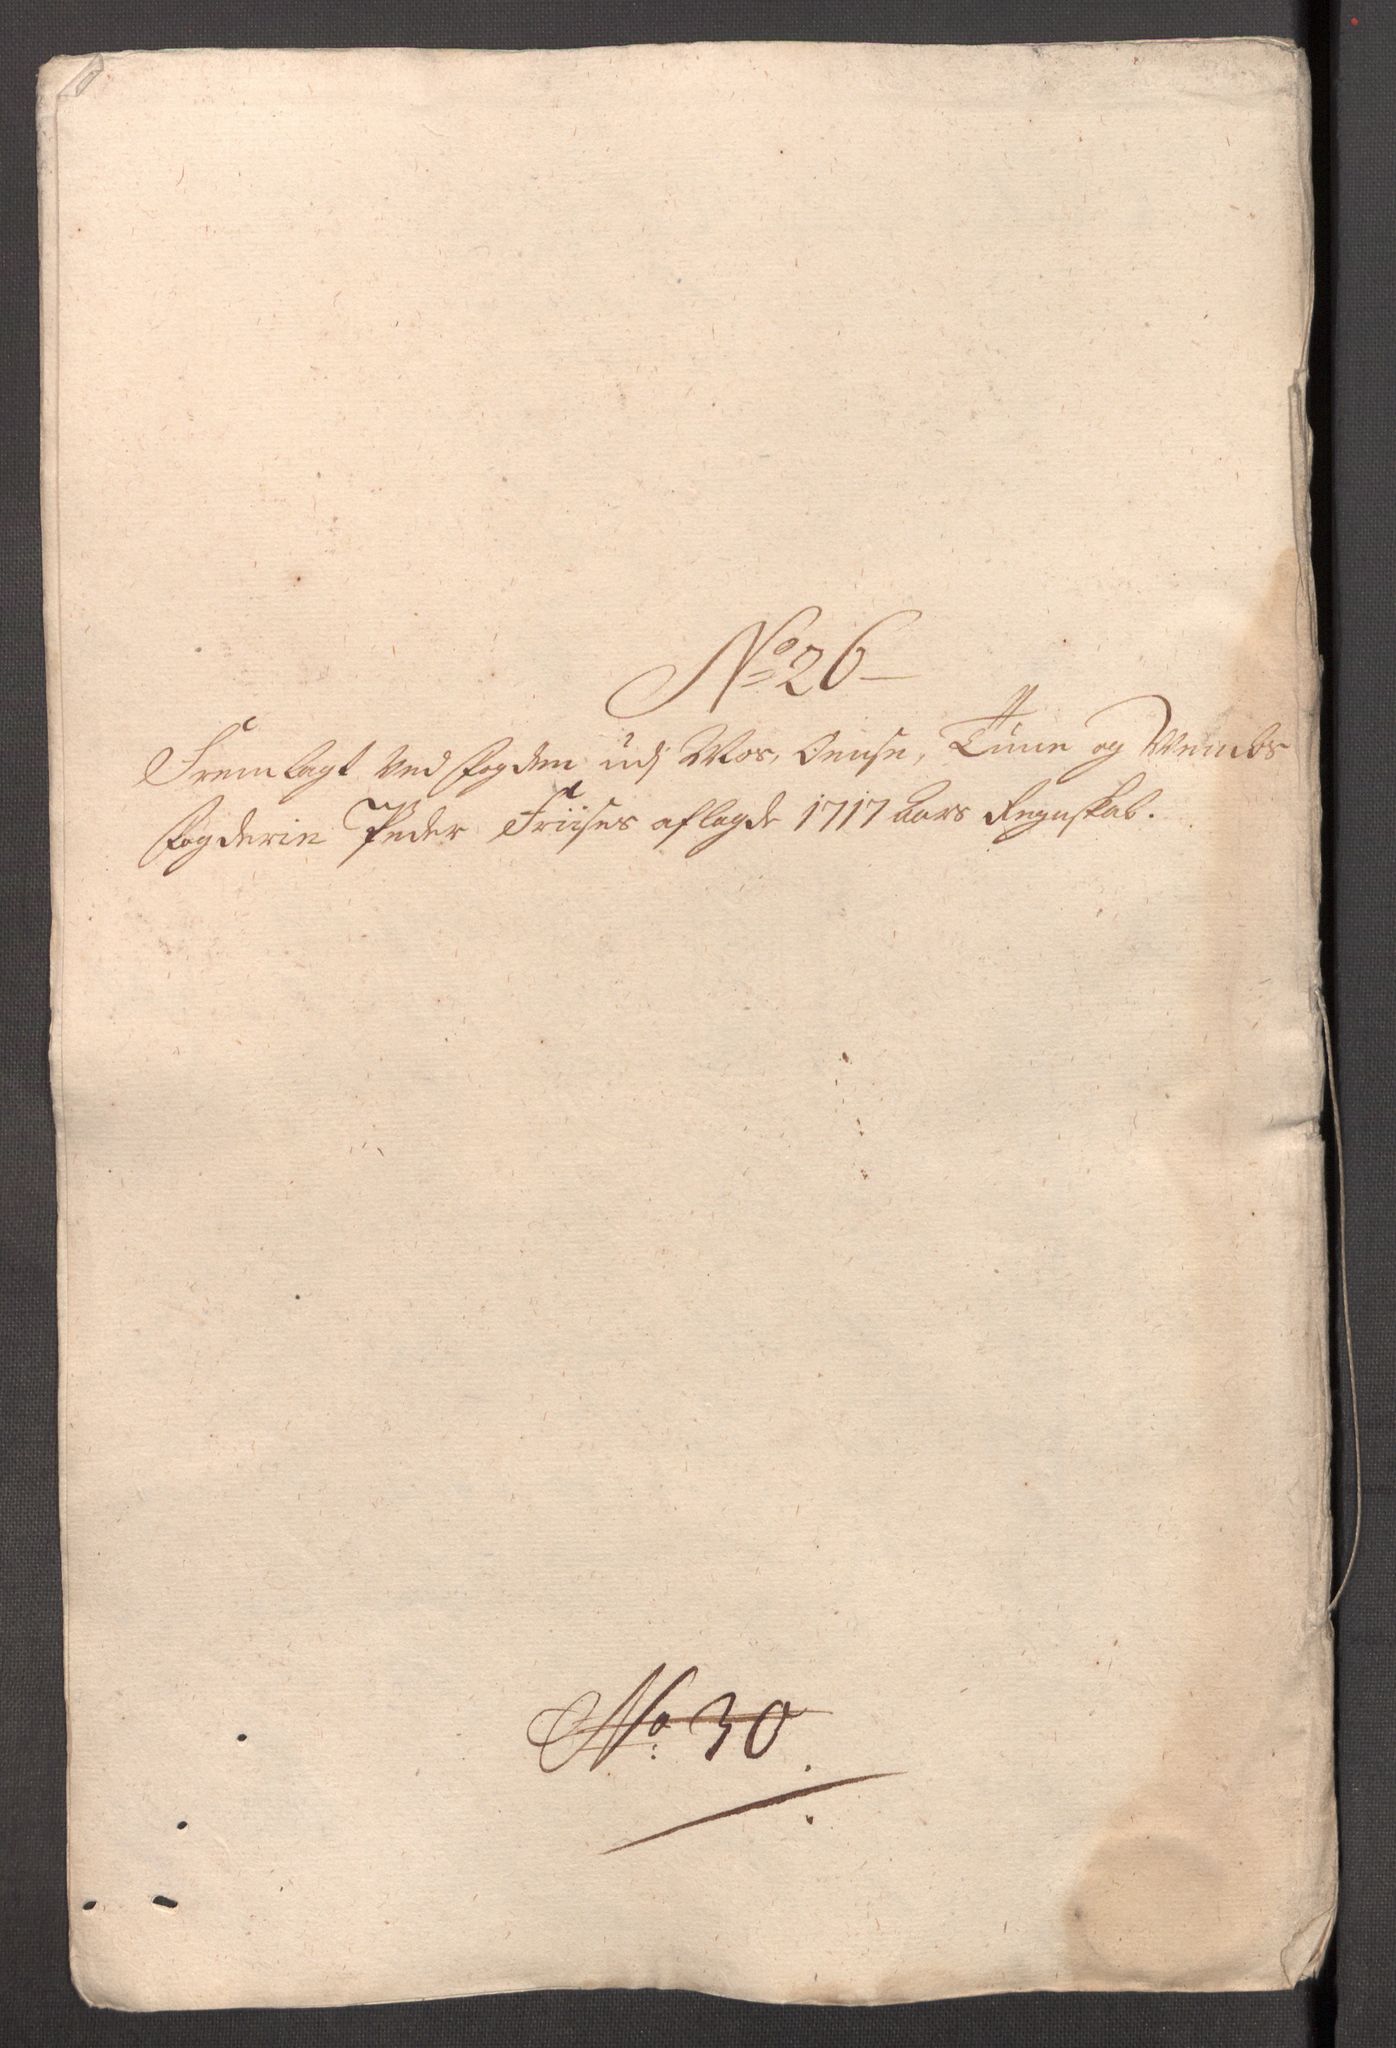 No 26
Fremlagt Ved fogden udj Mos, Onsøe, Tune og Wembs
fogderie Peder Friises aflagde 1717 aars Regnskab.
No. 30.